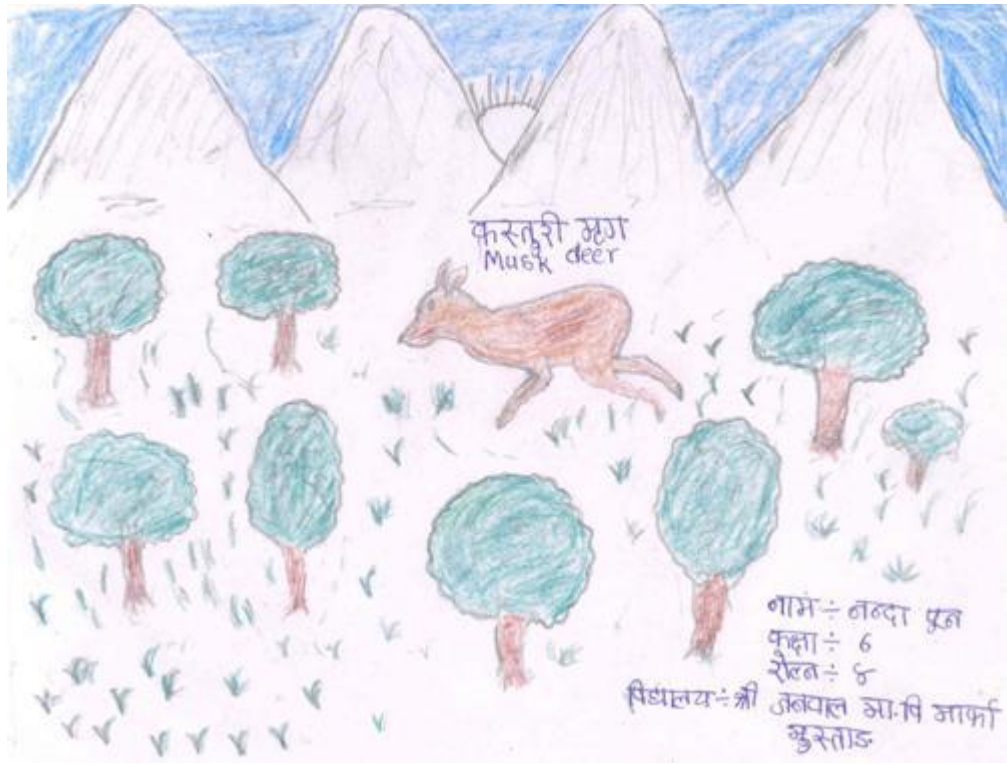 कस्तुरी मृग
Musk deer
नाम ÷ नन्दा पुन
कक्षा ÷ 6
रोल नं ÷ ४
विद्यालय ÷ श्री जनबाल मा.वि मार्फा
मुस्ताङ